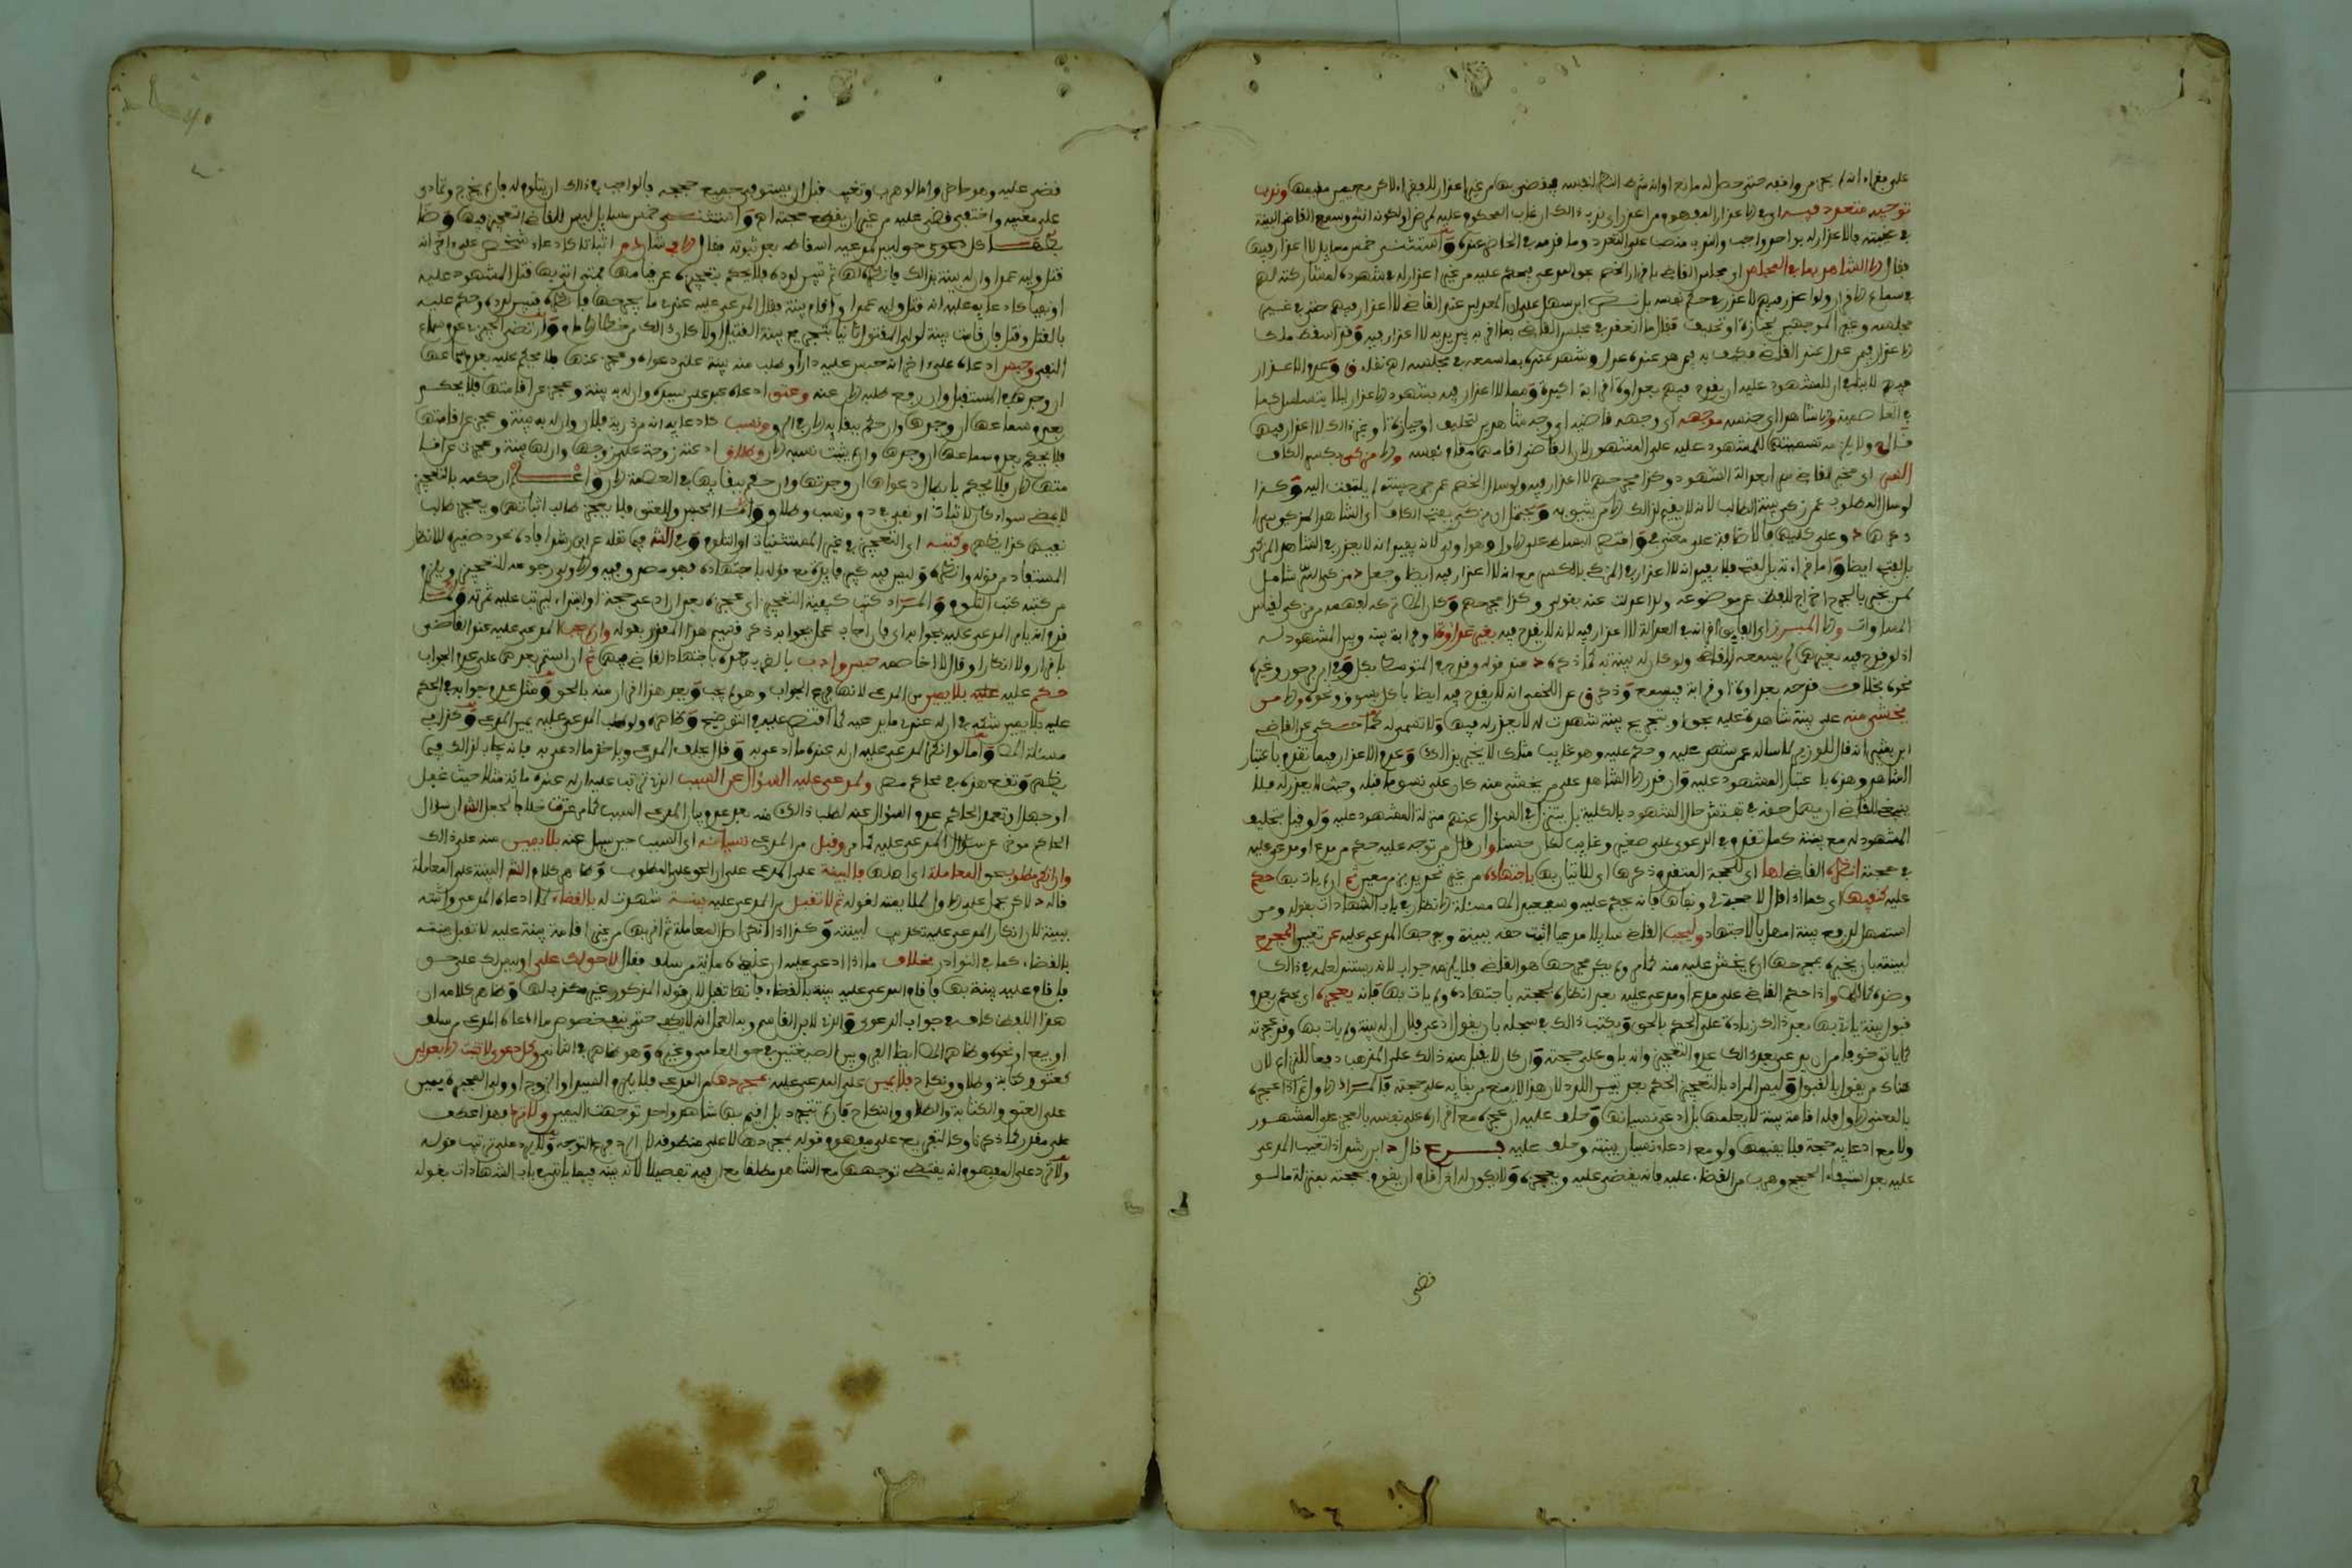 على بقاء انه لم يجز موافقه حتى حصل له مانع اوانه شرط النظر لنفسه فيقضي بها من غير اعذار للرفقاء لاكن مع يمين مقيمها وندب
توجيه متعدد فيه اي في الاعذار المفهوم من اعذر اي ندب ذالك ان غاب المحكوم عليه لمرض او لكونه انثى وسمع القاضي البينة
في غيبته بالاعذار له بواحد واجب وانه ينصب على التعدد وما قدمه في الحاضر عنده واستثنى خمس مسايل لا اعذار فيها
فقال الا الشاهد بما في المجلس اي مجلس القاضي باقرار الخصم بحق المدعي فيحكم عليه من غير اعذار له في شهوده لمشاركته لها
في سماع الاقرار ولو اعذر فيهم لاعذر في حكم نفسه بل نص ابن سهل على ان العدلين عند القاضي لا اعذار فيهم حتى في غير
مجلسه وغير الموجهين لحيازة او تحليف فقال ما انعقد في مجلس القاضي بما اقر به بين يديه لا اعذار فيه وقد اسقط ملك
الاعذار فيمن عدل عند القاضي فكيف به فيمن هو عنده عدل وشهد عنده بما سمعه في مجلسه اه نقله ق وعدم الاعذار
فيهم لا ينافي ان للمشهود عليه ان يقدح فيهم بعداوة او قرابة اكيدة ومما لا اعذار فيه شهود الاعذار ليلا يتسلسل كما
في العاصمية والا شاهدا اي جنسه موجهه اي وجهه قاضيه اي وجه شاهدين لتحليف او حيازة او نحو ذالك لا اعذار فيها
قال ولا يلزمه تسميتها للمشهود عليه على المشهور لان القاضي اقامهما مقام نفسه والا مزكي بكسر الكاف
السر اي مخبر القاضي سرا بعدالة الشهود وكذا مجرحهم لا اعذار فيه ولو سال الخصم عمن جرح بينته لم يلتفت اليه وكذا
لو سال المطلوب عمن زكى بينة الطالب لانه لا يقيم لذالك الا من يثق به ويحتمل ان مزكى بفتح الكاف اي الشاهد المزكى سرا
وعلى كليهما فالاضافة على معنى في واقتصر البساطي على الاول وهو اولى لانه يفيد انه لا يعذر في الشاهد المزكى
بالفتح ايضا واما قراءته بالفتح فلا يفيد انه لا اعذار في المزكي بالكسر مع انه لا اعذار فيه ايضا وجعل د مزكي السر شامل
لمن يخبر بالجرح اخراج للفظ عن موضوعه ولذا عدلت عنه بقولي وكذا مجرحهم وكان الحامل له لفهمه من مزكي لقياس
المساوات والا المبرز اي الفايق اقرانه في العدالة لا اعذار فيه لانه لا يقدح فيه بغير عداوة او قرابة بينه وبين المشهود له
اذ لو قدح فيه بغيرهما لم يسمعه القاضي ولو كان له بينة به كما ذكره د عند قوله وقدح في المتوسط بكل وفي ابن فرحون وغيره
نحوه بخلاف قدحه بعداوة او قرابة فيسمع وذكر ق عن اللخمي انه لا يقدح فيه ايضا باكل بسوق ونحوه والا من
يخشى منه على بينة شاهدة عليه بحق او بتجريح بينة شهدت له لا يعذر له فيها ولا تسمى له كما حكي عن القاضي
ابن بشير انه قال للوزير لما ساله عمن شهد عليه وحكم عليه وهو غايب مثلك لا يخبر بذالك وعدم الاعذار فيما تقدم باعتبار
الشاهد وهذه باعتبار المشهود عليه وان قدر الا الشاهد على من يخشى منه كان على نسق ما قبله وحيث لا يعذر له فلا
ينبغي للقاضي ان يهمل حقه في تفتيش حال الشهود بالكلية بل يتنزل في السؤال عنهم منزلة المشهود عليه ولو قيل بتحليف
المشهود له مع بينته كما تقدم في الدعوى على صغير وغايب لكان حسنا وان قال من توجه عليه حكم من مدع او مدعى عليه
لي حجة انظره القاضي لها اي للحجة المتقدم ذكرها اي للاتيان بها باجتهاده من غير تحديد بزمن معين ثم ان لم يات بها حكم
عليه كنفيها اي كما اذا قال لا حجة لي ونفاها فانه يحكم عليه وسيعيد المص مسئلة الانظار في باب الشهادات بقوله ومن
استمهل لدفع بينة امهل بالاجتهاد وليجب القاضي سايلا مدعيا اثبت حقه ببينة وجرحها المدعى عليه عن تعيين المجرح
لبينته بان يخبره بمجرحها ان لم يخش عليه منه كما مر ولم يكن مجرحها هو القاضي فلا يلزمه جواب لانه يستند لعلمه في ذالك
وضده كذالك واذا حكم القاضي على مدع او مدعى عليه بعد انظاره لحجته باجتهاده ولم يات بها فانه يعجزه اي يحكم بعدم
قبول بينة ياتي بها بعد ذالك زيادة على الحكم بالحق ويكتب ذالك في سجله بان يقول ادعى فلان ان له بينة ولم يات بها وقد عجزته
ليلا يا توخر ما ان يدعي بعد ذالك عدم التعجيز وانه باق على حجته وان كان لا يقبل منه ذالك على المذهب دفعا للنزاع لان
هناك من يقول بالقبول وليس المراد بالتعجيز الحكم بعد تبين اللدد لان هذا لا يمنع من بقايه على حجته فالمراد الاول ثم اذا عجزه
بالمعنى الاول فله اقامة بينة لم يعلمها بل ادعى نسيانها وحلف عليه ان عجزه مع اقراره على نفسه بالعجز على المشهور
ولا مع ادعايه حجة فلا يقيمها ولو مع ادعاء نسيان بينته وحلف عليه فرع قال د ابن رشد اذا تغيب المدعى
عليه بعد استيفاء الحجج وهرب من القضاء عليه فانه يقضى عليه ويعجزه ولا يكون له اذا قدم ان يقوم بحجته بمنزلة ما لو
قضى
قضى عليه وهو حاضر واما لو هرب وتغيب قبل ان يستوفي جميع حججه فالواجب في ذالك ان يتلوم له فان لم يخرج وتمادى
على مغيبه واختفى قضى عليه من غير ان يقطع حجته اه واستثنى خمس مسايل ليس للقاضي التعجيز فيها
كل دعوى حق ليس لمدعيه اسقاطه بعد ثبوته فقال الا في شان دم اثباتا كادعاء شخص على اخر انه
قتل وليه عمدا وان له بينة بذالك فانظره لها ثم تبين لدده فلا يحكم بتعجيزه عن قيامها فمتى اتى بها قتل المشهود عليه
او نفيا كادعايه عليه انه قتل وليه عمدا واقام بينة فقال المدعى عليه عندي ما يجرحها فانظره فتبين لدده وحكم عليه
بالقتل وقتل فان قامت بينة لولي المقتول ثانيا بتجريح بينة القتيل
النفي وحبس ادعاه على اخر انه حبس عليه دارا وطلب منه بينة على دعواه وعجز عنها فلا يحكم عليه بعدم سماعها
ان وجدها في المستقبل وان رفع طلبه الان عنه وعتق ادعاه عبد على سيده وان له به بينة وعجز عن اقامتها فلا يحكم
بعدم سماعها ان وجدها وان حكم ببقايه الان في الرق ونسب كادعايه انه من ذرية فلان وان له به بينة وعجز عن اقامتها
فلا يحكم بعدم سماعها ان وجدها وان لم يثبت نسبه الان وطلاق ادعته زوجة على زوجها وان لها بينة وعجزت عن اقا
متها الان فلا يحكم بابطال دعواها ان وجدتها وان حكم ببقايها في العصمة الان واعلم ان حكمه بالتعجيز
لا يمضي سواء كان لاثبات او نفي في دم ونسب وطلاق واما الحبس والعتق فلا يعجز طالب اثباتها ويعجز طالب
نفيها كذا يظهر وكتبه اي التعجيز في غير المستثنيات او التلوم وفي الش فيما نقله عن ابن رشد افادة تعود ضميره للانظار
المستفاد من قوله وانظره وليس فيه كبير فايدة مع قوله باجتهاده فهو مصدر وفيه والاولى رجوعه للتعجيز ويلزم
من كتبه كتب التلوم والمراد كتب كيفية التعجيز اي عجزه بعد ان ادعى حجة او ابتداء ليترتب عليه ثمرته ولما
قدم انه يامر المدعى عليه بجوابه اي فان اجاب عمل بجوابه ذكر قسيم هذا المقدر بقوله وان لم يجب المدعى عليه عند القاضي
باقرار ولا انكار وقال لا اخاصمه حبس وادب بالضرب بعده باجتهاد القاضي فيهما ثم ان استمر بعدهما على عدم الجواب
حكم عليه بلا يمين من المدعي لانها فرع الجواب وهو لم يجب ويعد هذا اقرارا منه بالحق ومثل عدم جوابه في الحكم
عليه بلا يمين شكه في ان له عنده ما يدعيه كما اقتصر عليه في التوضيح وظاهره ولو طلب المدعى عليه يمين المدعي وكذا في
مسئلة المص واما لو انكر المدعى عليه ان له عنده ما ادعى به وقال يحلف المدعي وياخذ ما ادعى به فانه يجاب لذالك فيما
يظهر وتقع هذه في محاكم مصر ولمدعى عليه السؤال عن السبب الذي ترتب عليه ان له عنده مائة مثلا حيث غفل
او جهل او تعمد الحاكم عدم السؤال عنه لطلب ذالك منه بعد عدم بيان المدعي السبب كما مر
الحاكم موخر عن سؤال المدعى عليه كما مر وقبل من المدعي نسيانه اي السبب حين سيل عنه بلا يمين منه على ذالك
وان انكر مطلوب بحق المعاملة اي اصلها فالبينة على المدعي على ان الحق على المطلوب وظاهر كلام الش البينة على المعاملة
قاله د لاكن عمل على الاول لملايمته لقوله ثم لا تقبل من المدعى عليه بينة شهدت له بالقضاء لما ادعاه المدعي واثبته
ببينة لان انكار المدعى عليه تكذيب لبينته وكذا اذا انكر اصل المعاملة ثم اقر بها من غير اقامة بينة عليه لا تقبل بينته
بالقضاء كما في النوادر بخلاف ما اذا ادعي عليه ان عليه مائة من سلف فقال لا حق لك علي او ليس لك علي حق
فاقام عليه بينة بها فاقام المدعى عليه بينة بالقضاء فانها تقبل لان قوله المذكور غير مكذب لها وظاهر كلامه ان
هذا اللفظ كاف في جواب الدعوى والذي لابن القاسم وبه العمل انه لا يكفي حتى ينفي خصوص ما ادعاه المدعي من سلف
او بيع او نحوه وظاهر المص ايضا الفرق بين الصيغتين في حق العامي وغيره وهو ظاهر في الثاني وكل دعوى لا تثبت الا بعدلين
كعتق وكتابة وطلاق ونكاح فلا يمين على المدعى عليه بمجردها من المدعي فلا يلزم السيد او الزوج او ولي المجبرة يمين
على العتق والكتابة والطلاق والنكاح فان لم تتجرد بل اقيم بها شاهد واحد توجهت اليمين ولا ترد فهذا عطف
على مقدر كما ذكرنا وكالتفريع على مفهوم قوله بمجردها لا على منطوقه لان الرد فرع التوجه ولا يرد على ترتيب قوله
ولا ترد على المفهوم انه يقتضي توجهها مع الشاهد مطلقا مع ان فيه تفصيلا لانه بينه فيما ياتي في باب الشهادات بقوله